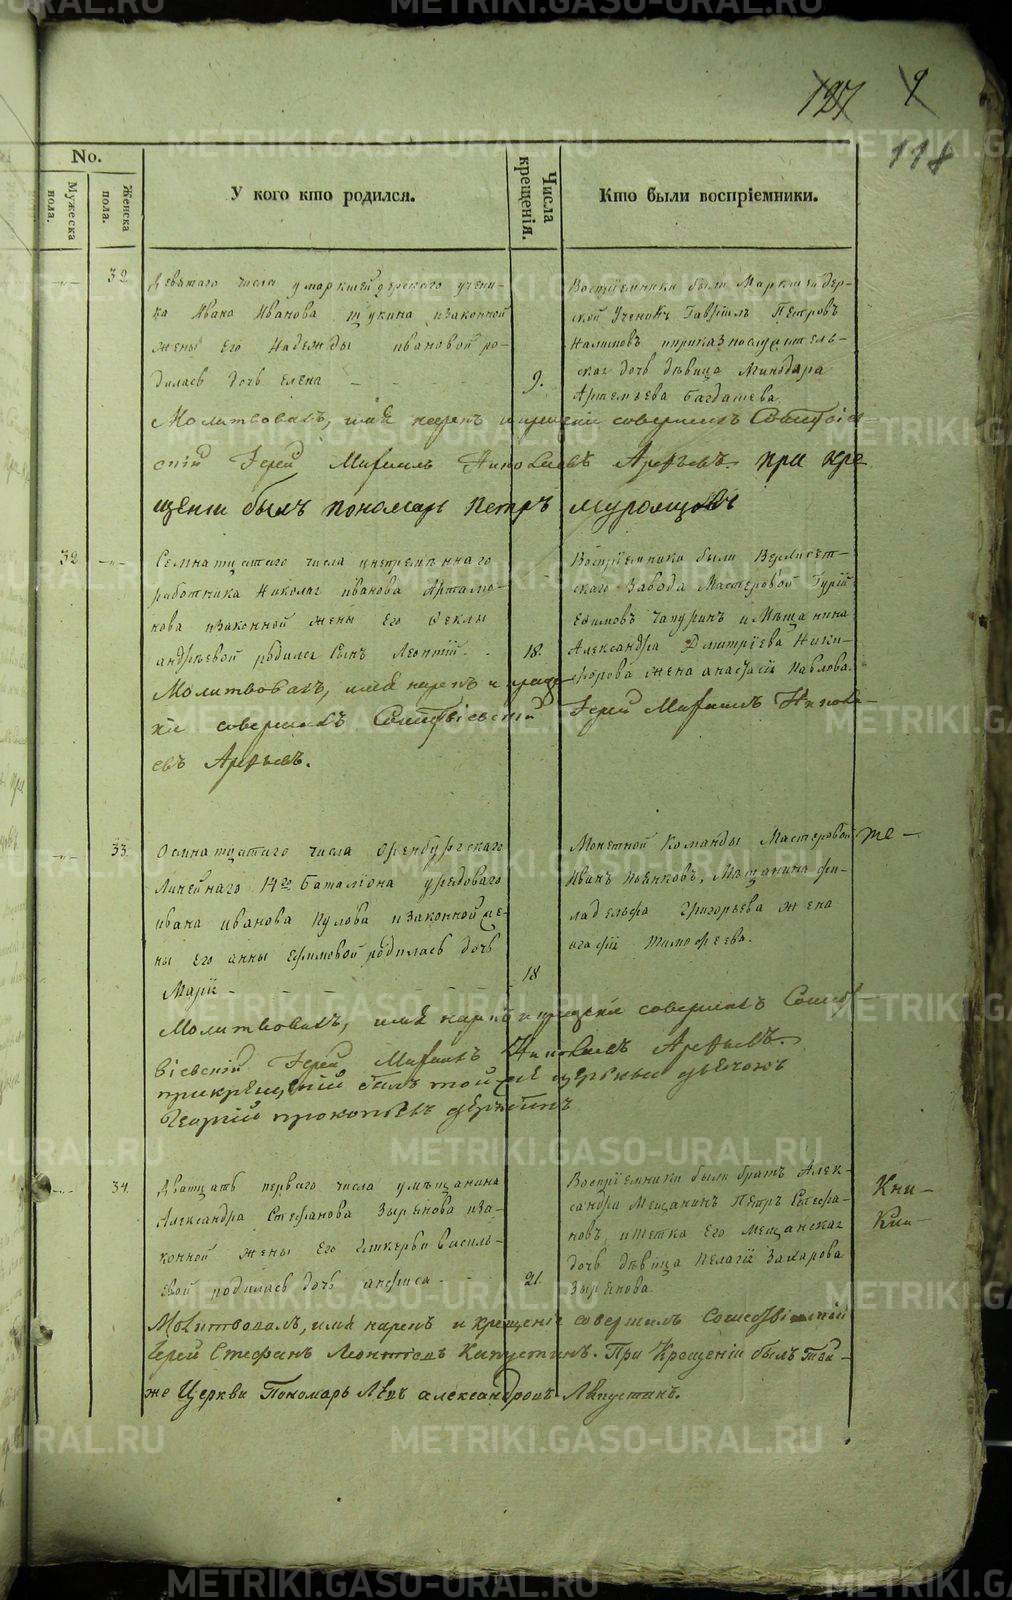 127 9
118
No.
Мужеска пола.
Женска пола.
У кого кто родился.
Числа крещенія.
Кто были воспріемники.
32
Девятаго числа умаркшейдерскаго учени-
ка Ивана Иванова Щукина изаконной
жены Его Надежды ивановой ро-
дилась дочь елена
9.
Воспріемники были Маркшейдер-
ской Ученикъ Гаврїилъ Петровъ
Налимовъ иприказнослужитель-
ская дочь дѣвица Минодара
Артемьева Багдашева.
Молитвовалъ, имя нарекъ и крещенїе совершилъ
Іерей Михаилъ Николаевъ Арефьевъ при кре
щенїи былъ пономарь Петръ муромцовъ
32
Семнатцатаго числа унепременнаго
работника Николая иванова Артамо-
нова изаконной жены Его Феклы
андреевой родился сынъ Леонтїй
18.
Воспріемники были Верхисет-
скаго Завода Мастеровой Гурїй
Ефимовъ Чапуринъ и Мѣщанина
Александра Дмитрїева Ники-
форова жена анастасїя Павлова.
Молитвовалъ, имя нарекъ и креще-
нїе совершилъ Іерей Михаилъ Никола-
евъ Арефьевъ.
33.
Осмнатцатаго числа Оренбургскаго
Линейнаго 14го Баталїона урядоваго
ивана иванова Кулова изаконной же-
ны Его анны Ефимовой родилась дочь
Марїя
18
Монетной Команды Мастеровой
Иванъ Поянковъ, Мѣщанина фи-
ладельфа Григорьева жена
агафїя тимофеева.
же
Молитвовалъ, имя нарекъ и крещенїе совершилъ
Іерей Михаилъ Николаевъ Арефьевъ.
прикрещенїи былъ той же церкви дьячокъ
Георгїй прокопьевъ
34.
Дватцать перваго числа умѣщанина
Александра Стефанова Зырянова иза-
конной жены Его Гликерїи Василь-
евой родилась дочь анфиса
21.
Воспріемники были братъ Алек-
сандра Мещанинъ Петръ Стефа-
новъ, итетка Его Мещанская
дочь дѣвица Пелагїя Захарова
Зырянова
Молитвовалъ, имя нарекъ и крещенїе совершилъ
Іерей Стефанъ Леонтїевъ Капустинъ. При Крещенїи былъ Тоя-
же Церкви Пономарь Левъ александровъ Ляпустинъ.
METRIKI.GASO-URAL.RU